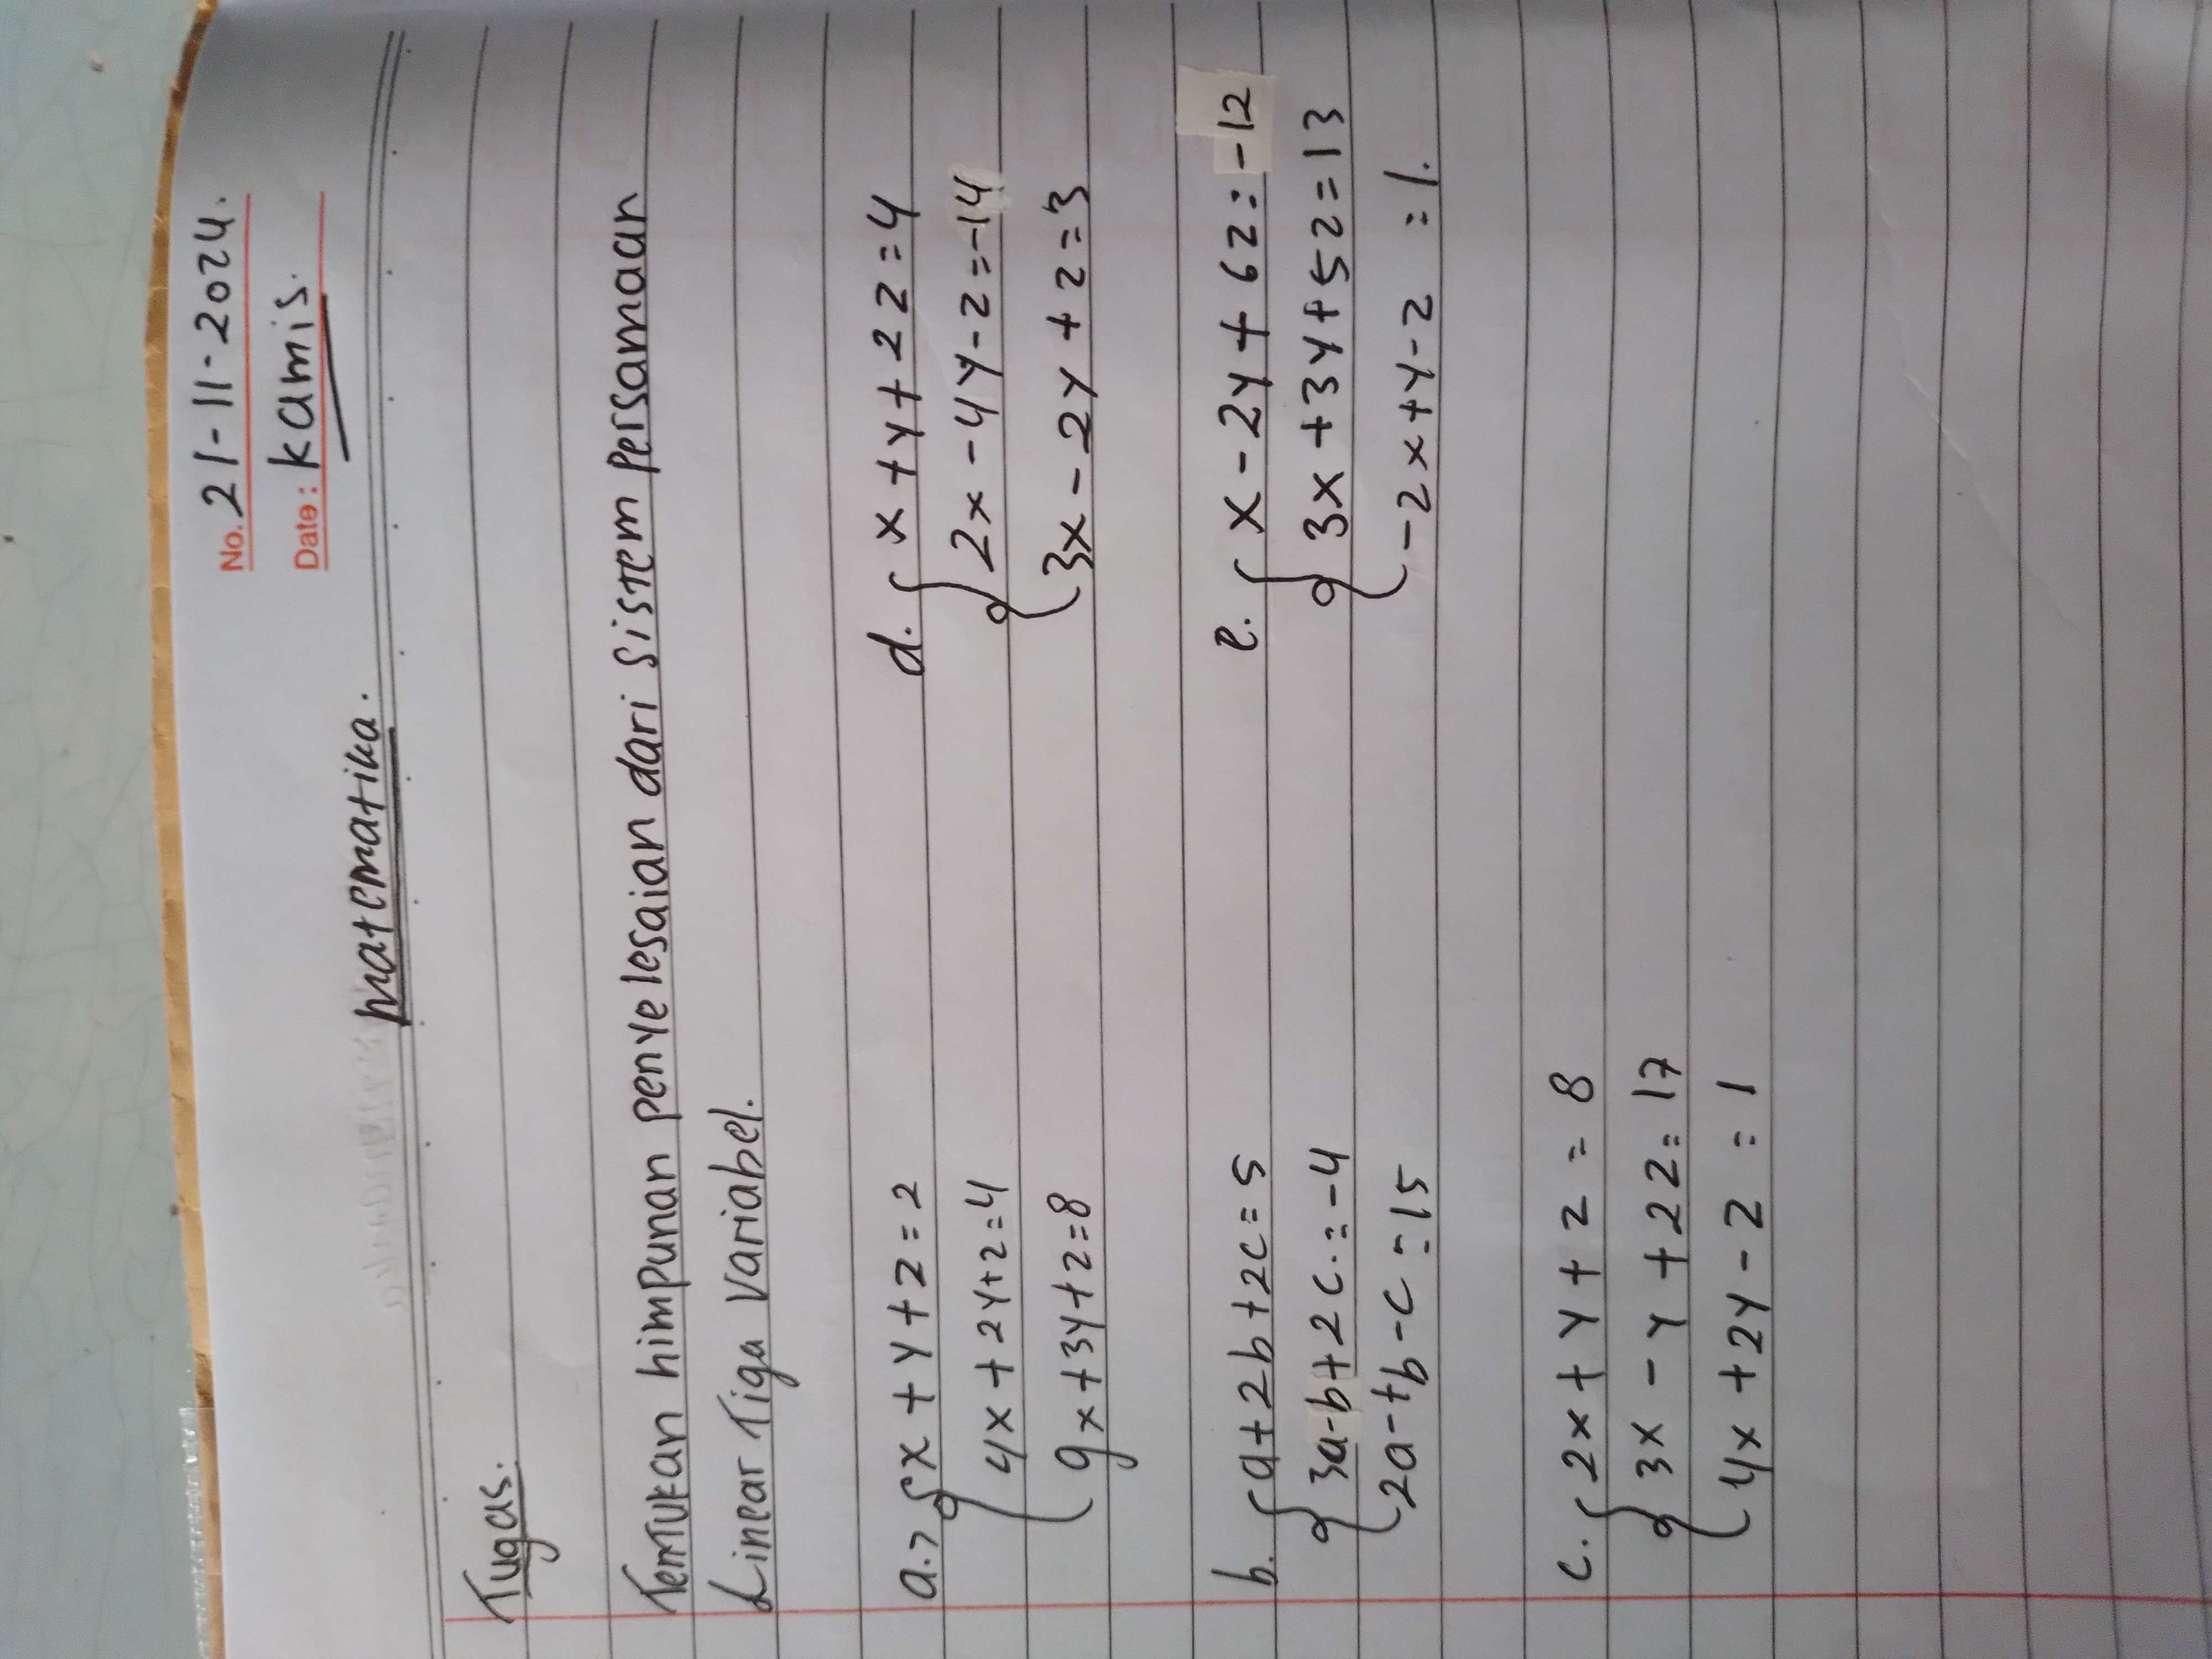 No. 21-11-2024.
Date: Kamis.
Matematika.
Tugas.
Tentukan himpunan penyelesaian dari sistem persamaan
Linear Tiga Variabel.
a.> x + y + z = 2
4x + 2y + z = 4
9x + 3y + z = 8
b. a + 2b + 2c = 5
3a - b + 2c. = -4
2a -+b - c = 15
c. 2x + y + z = 8
3x - y + 2z = 17
4x + 2y - z = 1
d. x + y + 2z = 4
2x - 4y - z = -14
3x - 2y + z = 3
e. x - 2y + 6z = -12
3x + 3y + 5z = 13
-2x + y - z = 1.